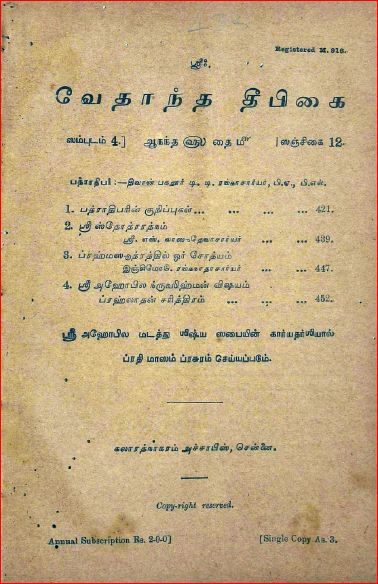 Registered M. 916.
ஸ்ரீ:.
வேதாந்த தீபிகை
ஸம்புடம் 4.] ஆநந்த ௵ தை ௴ [ஸஞ்சிகை 12.
பத்ராதிபர்:—திவான் பகதூர் டி. டி. ரங்காசார்யர், பி.ஏ., பி.எல்.
1. பத்ராதிபரின் குறிப்புகள்... ... ... ... 421.
2. ஸ்ரீ ஸ்தோத்ரரத்நம்
ஸ்ரீ. எஸ். வாஸுதேவாசார்யர் ... ... 439.
3. ப்ரஹ்மஸூத்ரத்தில் ஓர் சோத்யம்
ரங்கநாதாசார்யர் ... ... 447.
4. ஸ்ரீ அஹோபில ந்ருஸிஹ்மன் விஷயம்
ப்ரஹ்லாதன் சரித்திரம் ... ... ... 452.
ஸ்ரீ அஹோபில மடத்து ஶிஷ்ய ஸபையின் கார்யதர்ஶியால்
ப்ரதி மாஸம் ப்ரசுரம் செய்யப்படும்.
கலாரத்நாகரம் அச்சாபீஸ், சென்னை.
Copy-right reserved.
Annual Subscription Rs. 2-0-0] [Single Copy As. 3.